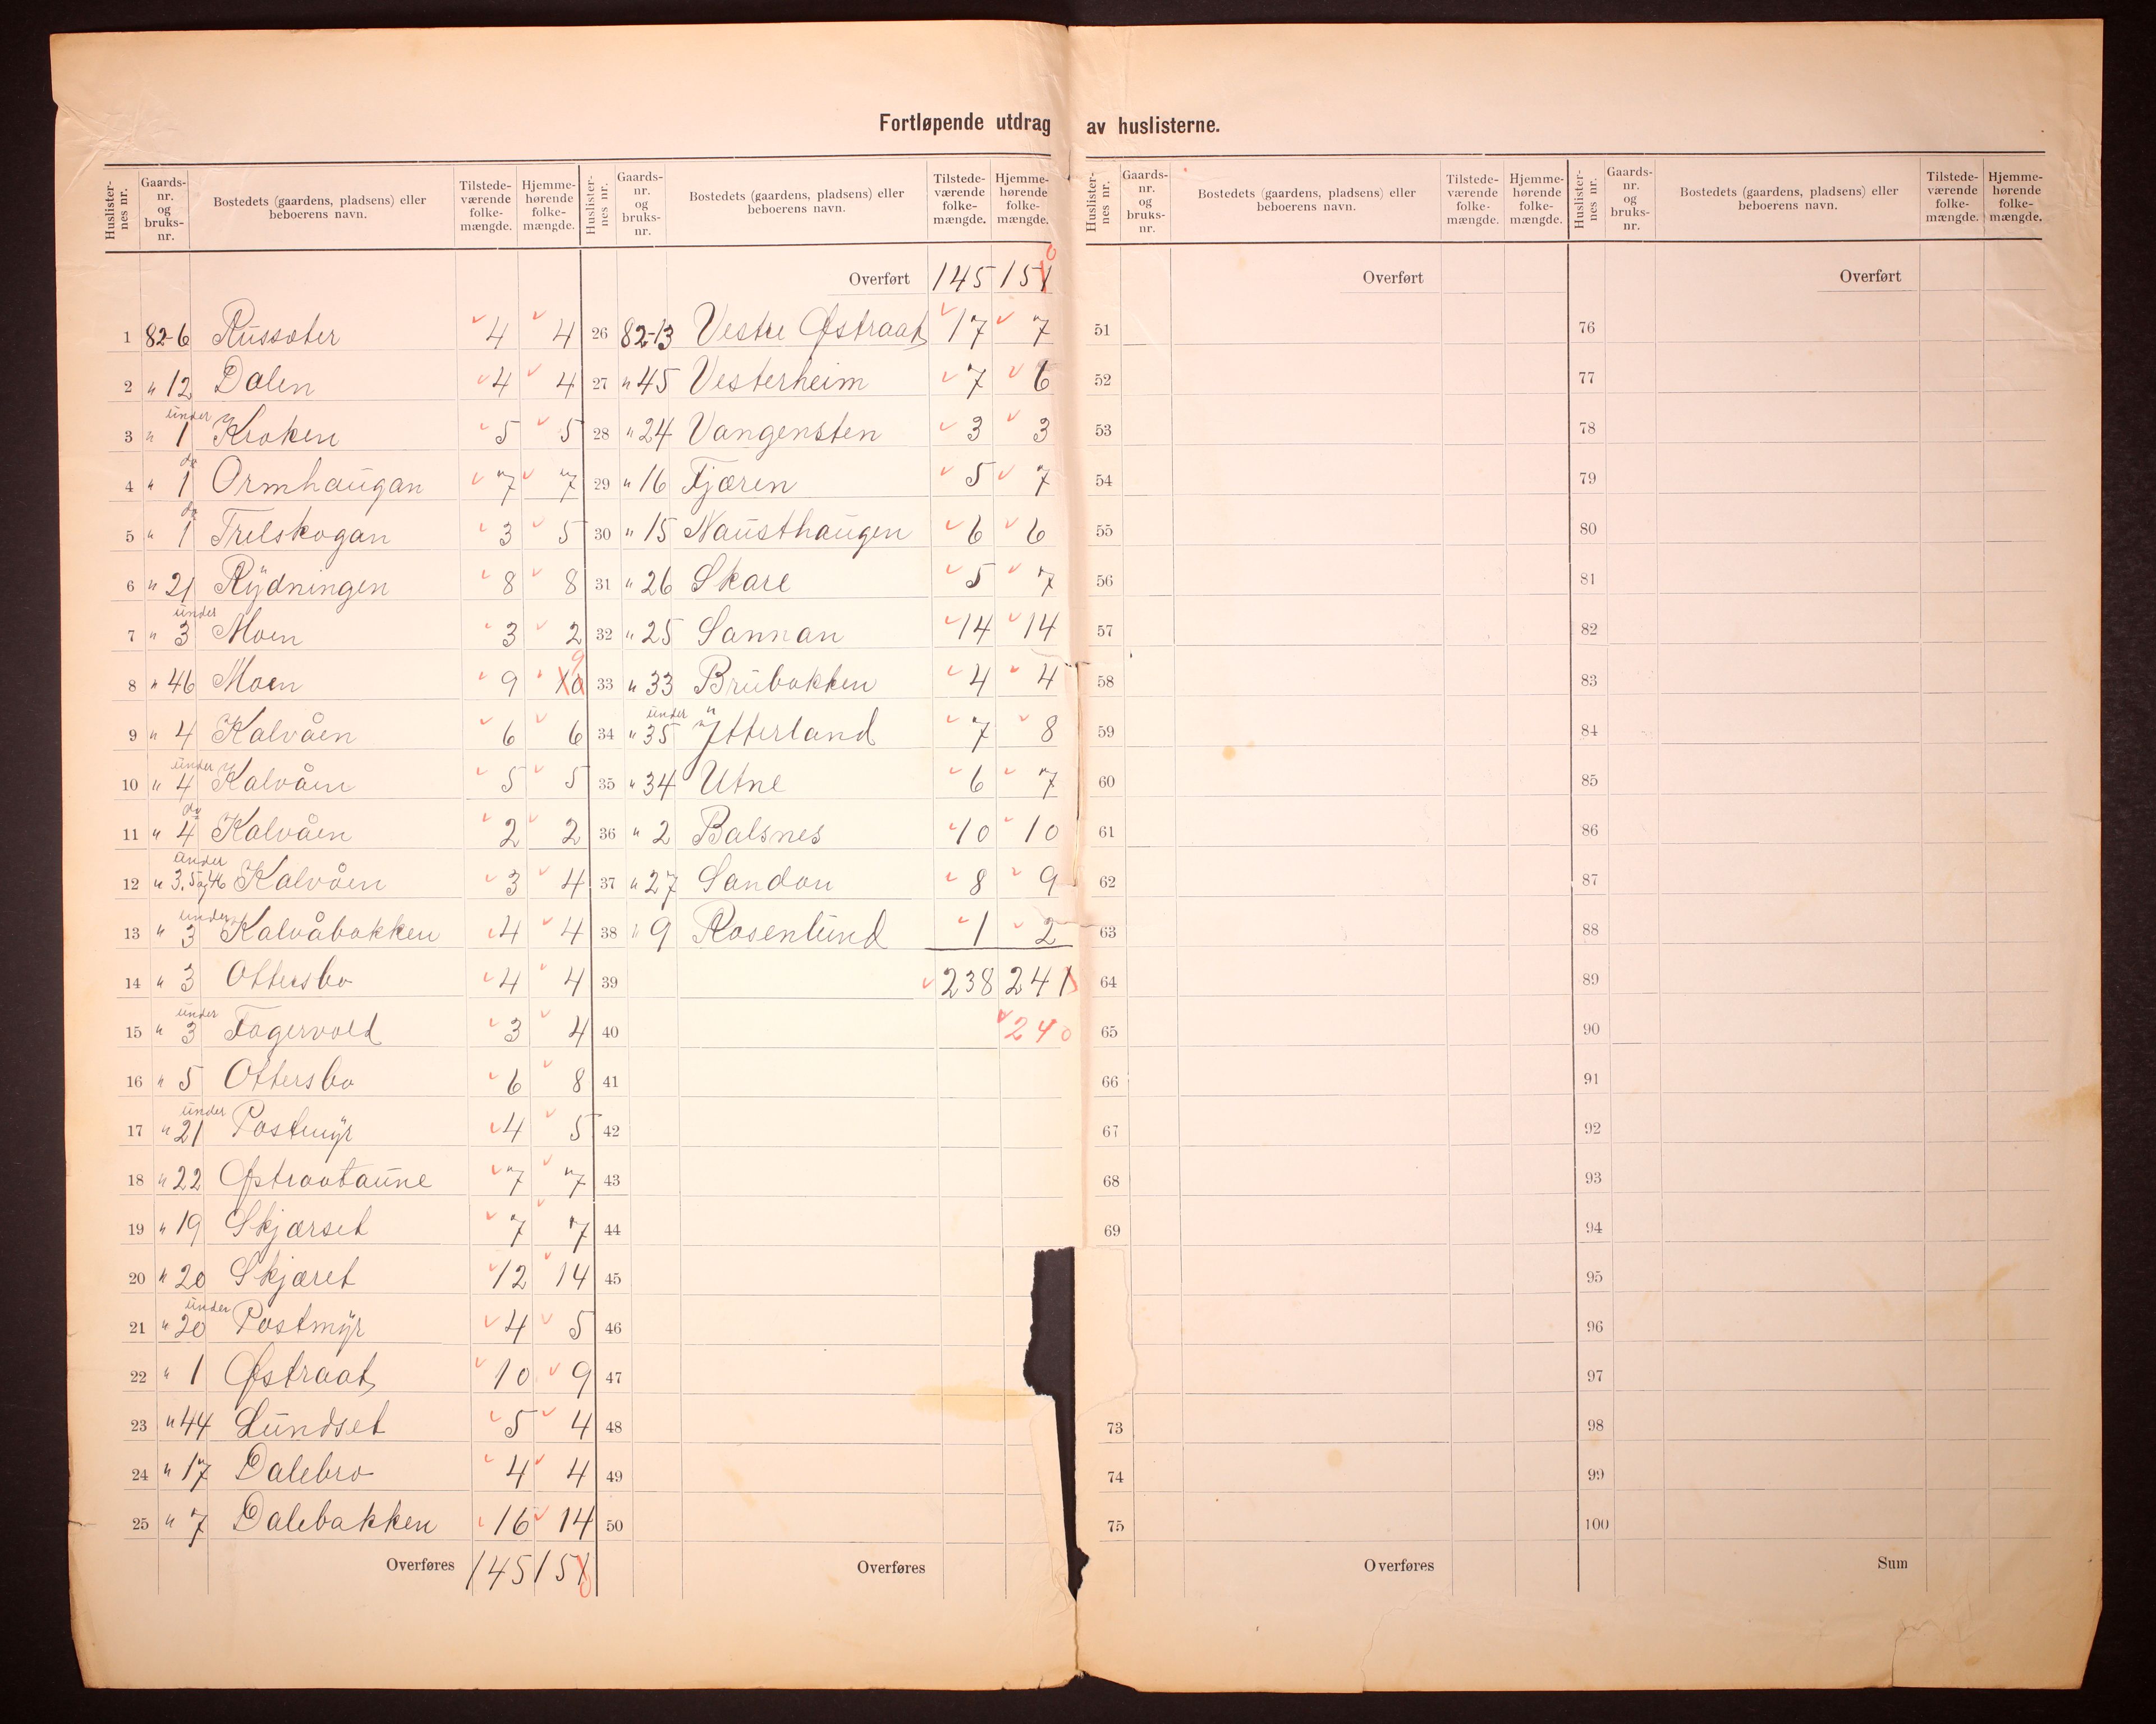 Fortløpende utdrag av huslisterne.
Huslisternes nr. Gaards-nr. og bruks-nr. Bostedets (gaardens, pladsens) eller beboerens navn. Tilstedeværende folkemængde. Hjemmehørende folkemængde.
1 82-6 Russæter 4 4
2 " 12 Dalen 4 4
3 " under 1 Kroken 5 5
4 " do 1 Ormhaugan 7 7
5 " do 1 Trelskogan 3 5
6 " 21 Rydningen 8 8
7 " under 3 Moen 3 2
8 " 46 Moen 9 10 9
9 " 4 Kalvåen 6 6
10 " under 4 Kalvåen 5 5
11 " do 4 Kalvåen 2 2
12 " under 3, 5 og 46 Kalvåen 3 4
13 " under 3 Kalvåbakken 4 4
14 " 3 Ottersbo 4 4
15 " under 3 Fagervold 3 4
16 " 5 Ottersbo 6 8
17 " under 21 Postmyr 4 5
18 " 22 Østraataune 7 7
19 " 19 Skjærset 7 7
20 " 20 Skjæret 12 14
21 " under 20 Postmyr 4 5
22 " 1 Østraat 10 9
23 " 44 Lundset 5 4
24 " 17 Dalebro 4 4
25 " 7 Dalebakken 16 14
Overføres 145 151 0
Huslisternes nr. Gaards-nr. og bruks-nr. Bostedets (gaardens, pladsens) eller beboerens navn. Tilstedeværende folkemængde. Hjemmehørende folkemængde.
Overført 145 151 0
26 82-13 Vestre Østraat 17 7
27 " 45 Vesterheim 7 6
28 " 24 Vangensten 3 3
29 " 16 Fjæren 5 7
30 " 15 Nausthaugen 6 6
31 " 26 Skare 5 7
32 " 25 Sannan 14 14
33 " 33 Brubakken 4 4
34 " under 35 Ytterland 7 8
35 " 34 Utne 6 7
36 " 2 Balsnes 10 10
37 " 27 Sandou 8 9
38 " 9 Rosenlund 1 2
39 238 241
40 240
41
42
43
44
45
46
47
48
49
50
Overføres
Huslisternes nr. Gaards-nr. og bruks-nr. Bostedets (gaardens, pladsens) eller beboerens navn. Tilstedeværende folkemængde. Hjemmehørende folkemængde.
Overført
51
52
53
54
55
56
57
58
59
60
61
62
63
64
65
66
67
68
69
73
74
75
Overføres
Huslisternes nr. Gaards-nr. og bruks-nr. Bostedets (gaardens, pladsens) eller beboerens navn. Tilstedeværende folkemængde. Hjemmehørende folkemængde.
Overført
76
77
78
79
80
81
82
83
84
85
86
87
88
89
90
91
92
93
94
95
96
97
98
99
100
Sum